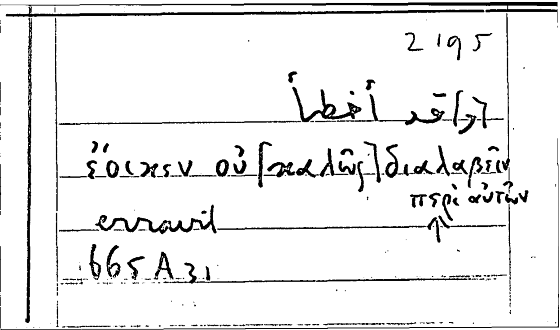 2195
[و]قد أخطأ
ἔοικεν οὐ [καλῶς] διαλαβεῖν
περὶ αὐτῶν
↑
erravit
665 A 31